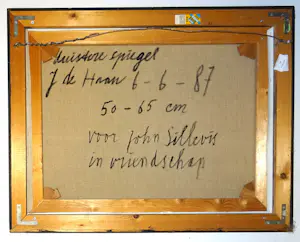 duistere spiegel
J de Haan 6-6-87
50-65 cm
voor John Sillevis
in vriendschap